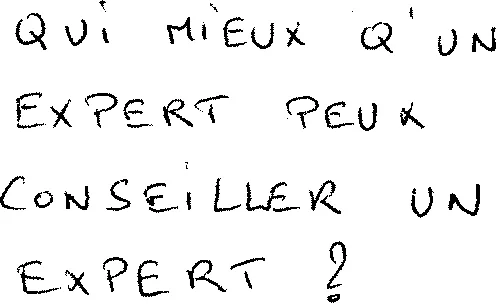 QUi MiEUX Q'UN
EXPERT PEUX
CONSEiLLER UN
EXPERT ?